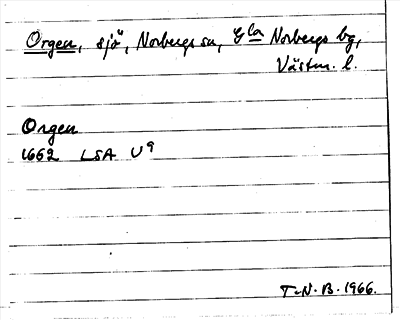 Orgen, sjö, Norbergs sn, Gla Norbergs bg,
Västm. l.
Orgen
1652 LSA U9
T.N.B. 1966.